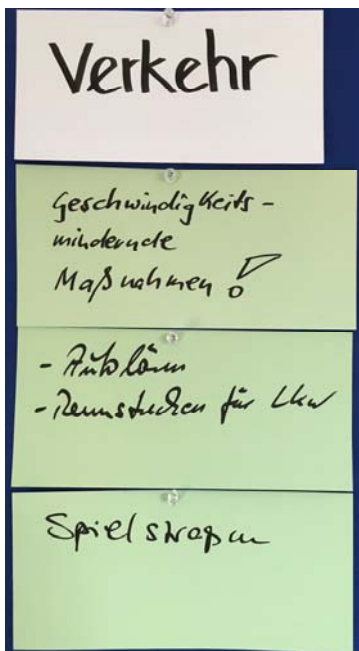 Verkehr
Geschwindigkeits-
mindernde
Maßnahmen !
- Autolärm
- Rennstrecken für Lkw
Spielstraßen